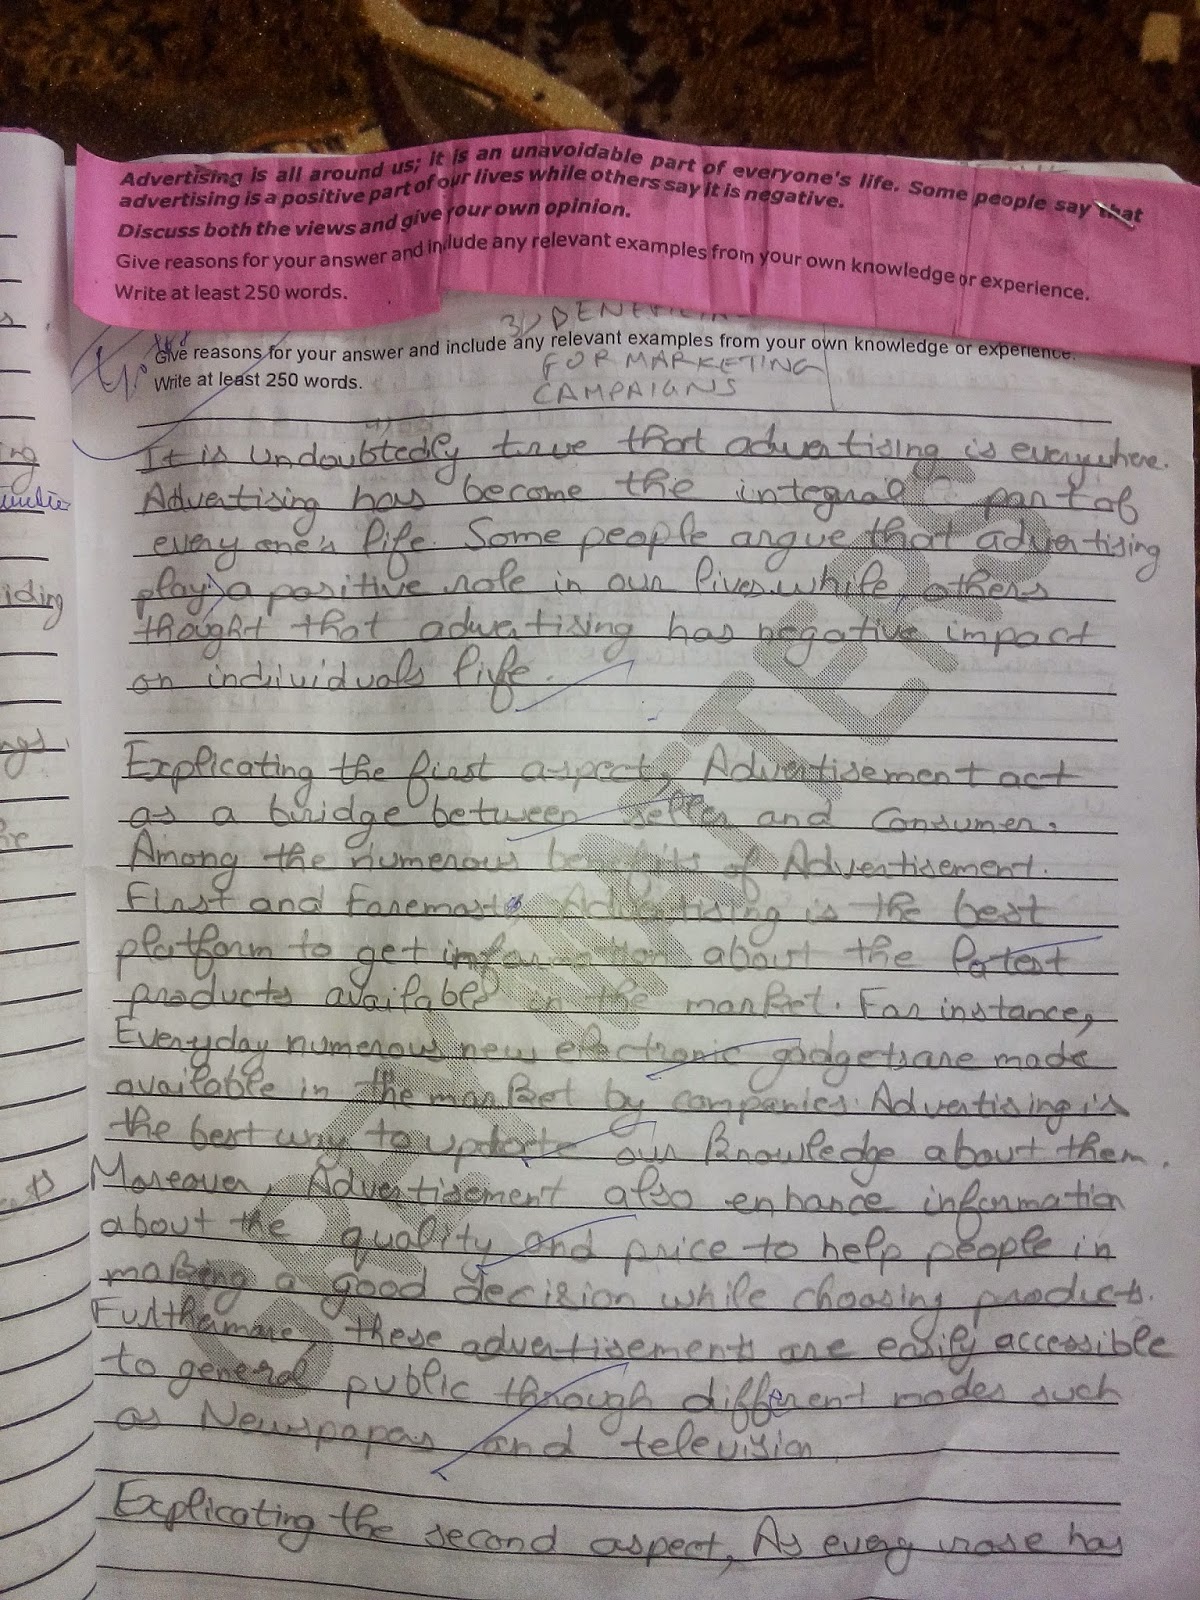 Advertising is all around us; it is an unavoidable part of everyone's life. Some people say that
advertising is a positive part of our lives while others say it is negative.
Discuss both the views and give your own opinion.
Give reasons for your answer and include any relevant examples from your own knowledge or experience.
Write at least 250 words.
3)
Give reasons for your answer and include any relevant examples from your own knowledge or experience.
FOR MARKETING
Write at least 250 words.
CAMPAIGNS
It is undoubtedly true that advertising is everywhere.
Advertising has become the integral part of
every one's life. Some people argue that advertising
plays a positive role in our lives while, others
thought that advertising has negative impact
on individuals life.
Explicating the first aspect, Advertisement act
as a bridge between seller and Consumer.
Among the numerous benefits of Advertisement.
First and Foremost, Advertising is the best
platform to get information about the latest
products available in the market. For instance,
Everyday numerous new electronic gadgets are made
available in the market by companies. Advertising is
the best way to update our knowledge about them.
Moreover, Advertisement also enhance information
about the quality and price to help people in
making a good decision while choosing products.
Furthermore, these advertisements are easily accessible
to general public through different modes such
as Newspapers and television
Explicating the second aspect, As every rose has
GREY MATTERS
ing
iding
ngs.